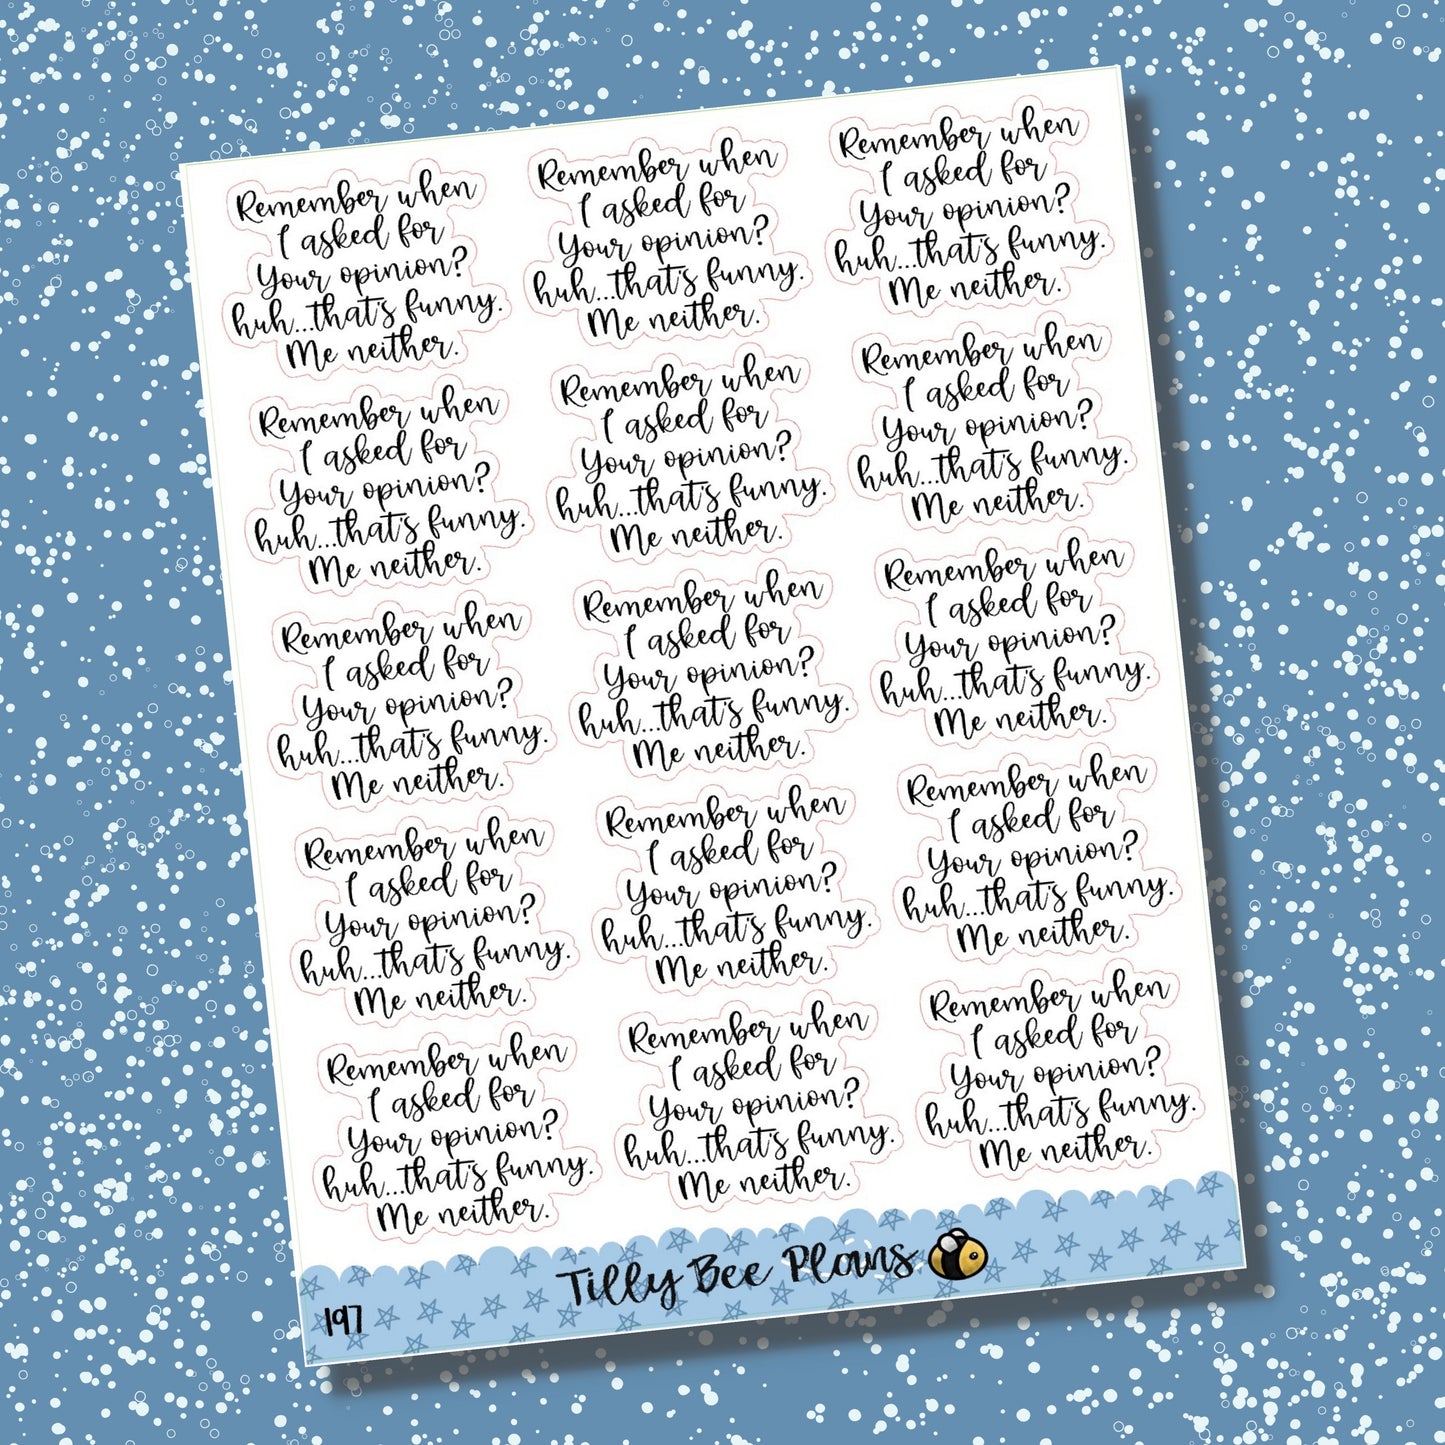 Remember when
I asked for
Your opinion?
huh...that's funny.
Me neither.
Remember when
I asked for
Your opinion?
huh...that's funny.
Me neither.
Remember when
I asked for
Your opinion?
huh...that's funny.
Me neither.
Remember when
I asked for
Your opinion?
huh...that's funny.
Me neither.
Remember when
I asked for
Your opinion?
huh...that's funny.
Me neither.
Remember when
I asked for
Your opinion?
huh...that's funny.
Me neither.
Remember when
I asked for
Your opinion?
huh...that's funny.
Me neither.
Remember when
I asked for
Your opinion?
huh...that's funny.
Me neither.
Remember when
I asked for
Your opinion?
huh...that's funny.
Me neither.
Remember when
I asked for
Your opinion?
huh...that's funny.
Me neither.
Remember when
I asked for
Your opinion?
huh...that's funny.
Me neither.
Remember when
I asked for
Your opinion?
huh...that's funny.
Me neither.
Remember when
I asked for
Your opinion?
huh...that's funny.
Me neither.
Remember when
I asked for
Your opinion?
huh...that's funny.
Me neither.
Remember when
I asked for
Your opinion?
huh...that's funny.
Me neither.
197
Tilly Bee Plans